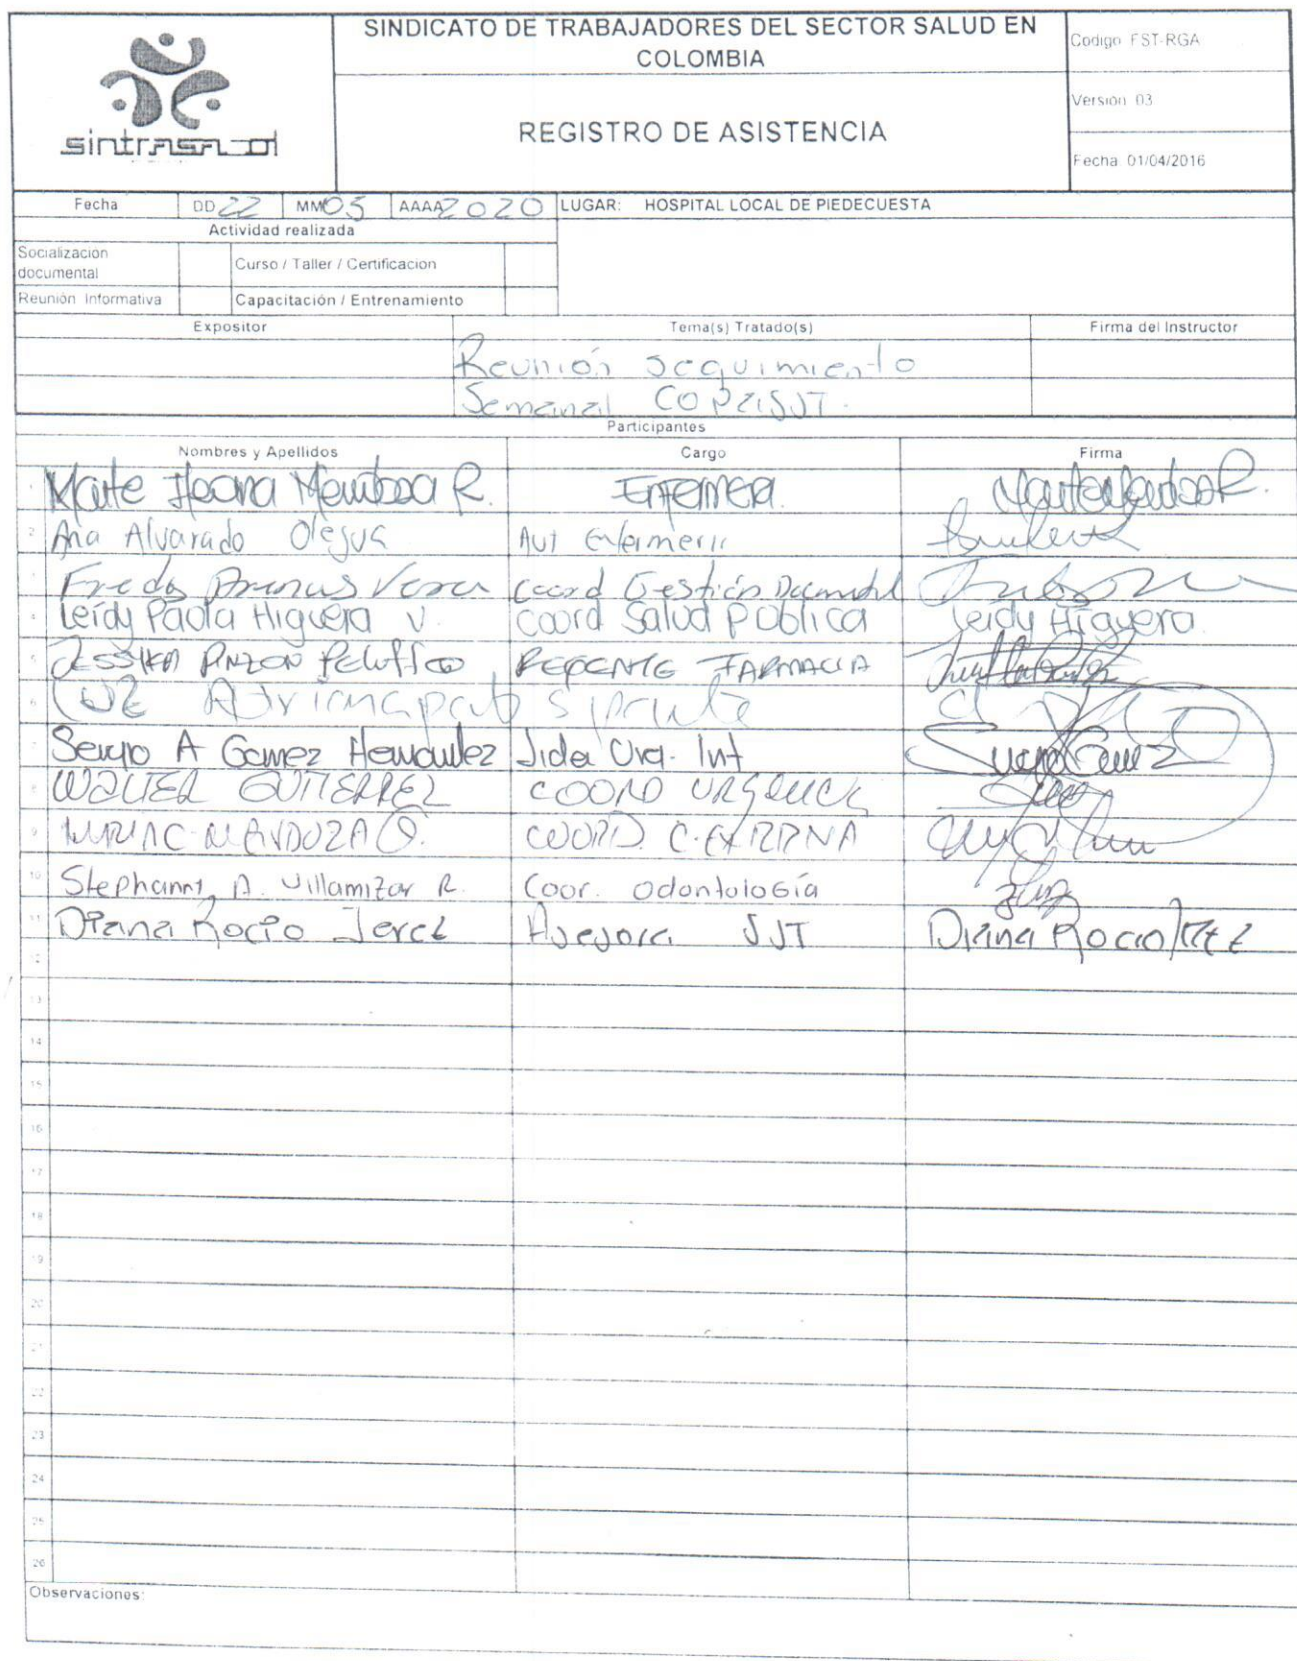 SINDICATO DE TRABAJADORES DEL SECTOR SALUD EN
COLOMBIA
Codigo FST-RGA
Version 03
REGISTRO DE ASISTENCIA
Fecha 01/04/2016
sintrasa
Fecha DD 22 MM 05 AAAA 2020 LUGAR: HOSPITAL LOCAL DE PIEDECUESTA
Actividad realizada
Socialización
documental
Curso / Taller / Certificacion
Reunión Informativa Capacitación / Entrenamiento
Expositor Tema(s) Tratado(s) Firma del Instructor
Reunión seguimiento
Semanal COPASST.
Participantes
Nombres y Apellidos Cargo Firma
1 Mendoza R. Enfermera
2 Ana Alvarado Olejua Aut Enfermeri
3 Coord Gestión
4 Leidy Paola Higuera V. Coord Salud Publica Leidy Higuera
5 PINZON REGENTE FARMACIA
6
7 Sergio A Gomez Hernandez Lider Urg. Int
8 WALTER GUTIERREZ COORD URGENCIA
9 MENDOZA COORD. C. EXTERNA
10 Stephanny A. Villamizar R. Coor. odontología
11 Diana Rocio Jerez Asesora SST Diana Rocio
12
13
14
15
16
17
18
19
20
21
22
23
24
25
26
Observaciones: